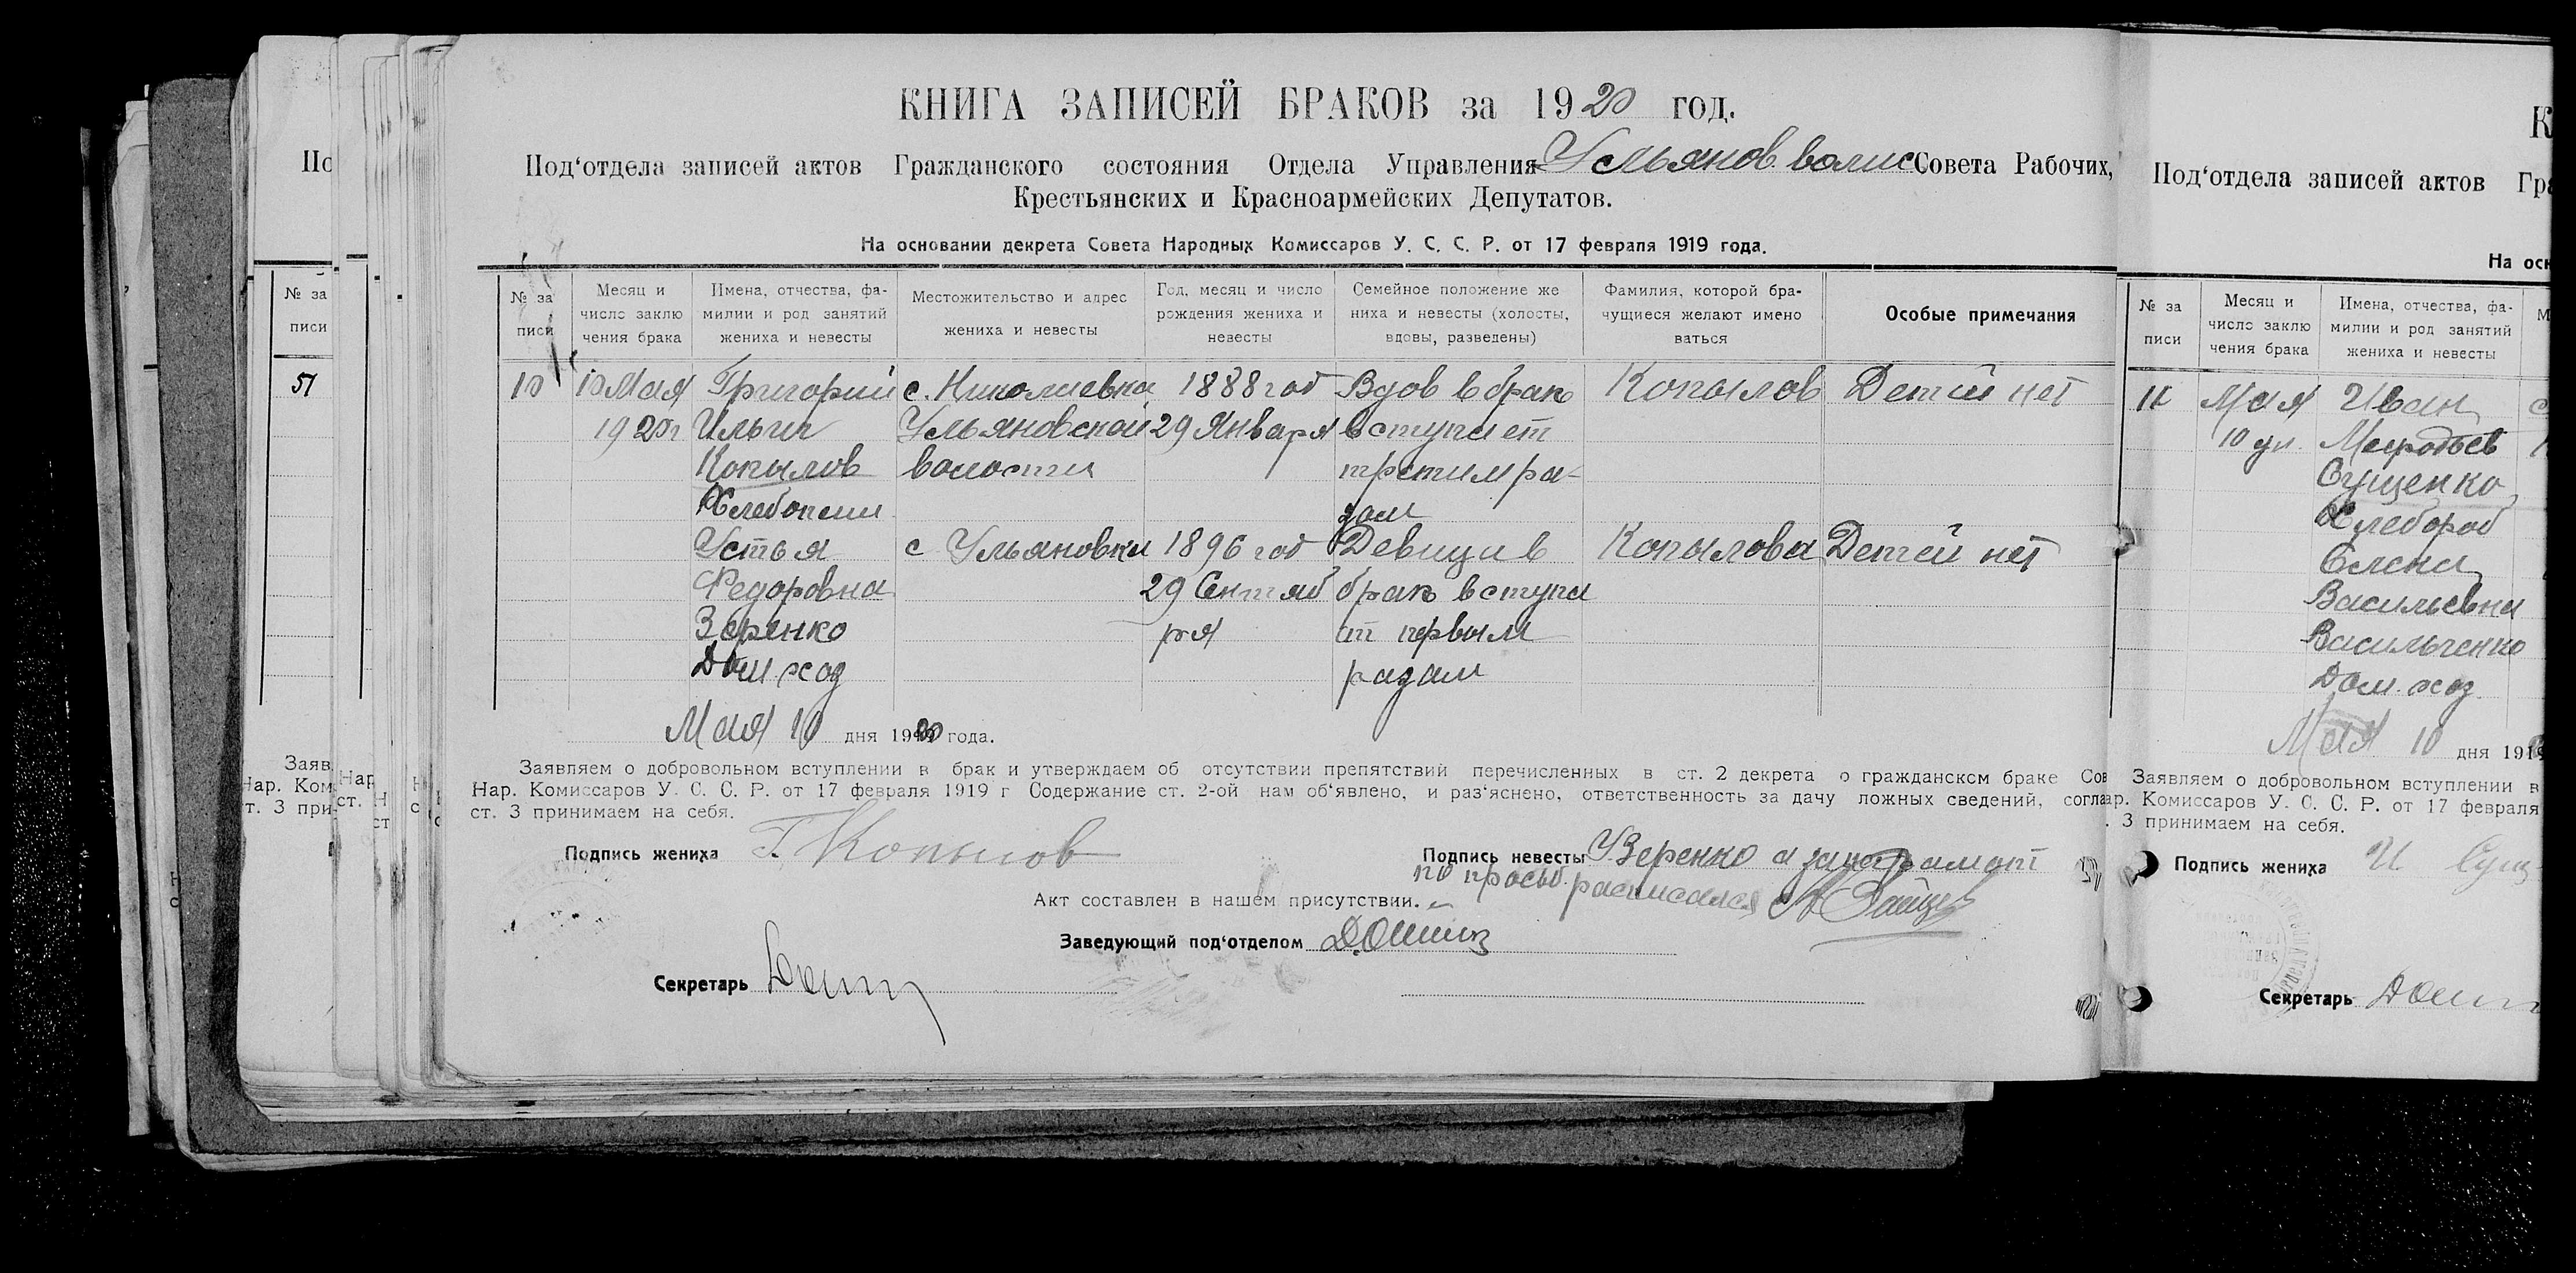 КНИГА ЗАПИСЕЙ БРАКОВ за 1920 год.
Под‘отдела записей актов Гражданского состояния Отдела Управления Ульянов. волис Совета Рабочих,
Крестьянских и Красноармейских Депутатов.
На основании декрета Совета Народных Комиссаров У. С. С. Р. от 17 февраля 1919 года.
№ за писи
Месяц и число заклю чения брака
Имена, отчества, фа- милии и род занятий жениха и невесты
Местожительство и адрес жениха и невесты
Год, месяц и число рождения жениха и невесты
Семейное положение же ниха и невесты (холосты, вдовы, разведены)
Фамилия, которой бра- чущиеся желают имено ваться
Особые примечания
10 10 Мая Григорий с. Николаевка 1888 год Вдов в брак Копылов Детей нет
1920г Ильич Ульяновской 29 Января вступает
Копылов волости третим ра-
Хлебопаш зом
Устья с Ульяновки 1896 год Девица в Копылова Детей нет
Федоровна 29 Сентяб брак вступа
Зеренко ря ет первым
Дом. хоз разам
Мая 10 дня 1920 года.
Заявляем о добровольном вступлении в брак и утверждаем об отсутствии препятствий перечисленных в ст. 2 декрета о гражданском браке Сов
Нар. Комиссаров У. С. С. Р. от 17 февраля 1919 г Содержание ст. 2-ой нам об‘явлено, и раз‘яснено, ответственность за дачу ложных сведений, согла
ст. 3 принимаем на себя.
Подпись жениха Г. Копылов
Подпись невесты У Зеренко а за
по просьб. расписался А Зайцев
Акт составлен в нашем присутствии.
Заведующий под‘отделом
Секретарь
По
№ за писи
51
Заяв
Нар. Ком
т. 3 при
Нар
ст.
К
Под‘отдела записей актов Гра
На осн
№ за писи
Месяц и число заклю чения брака
Имена, отчества, фа- милии и род занятий жениха и невесты
М
11 Мая Иван
10 дн. Мефодьев
Сущенко
Хлебороб
Елена
Васильевна
Васильченко
Дом. хоз.
Мая 10 дня 191
Заявляем о добровольном вступлении в
ар. Комиссаров У. С. С. Р. от 17 февраля
. 3 принимаем на себя.
Подпись жениха И Сущ
Секретарь